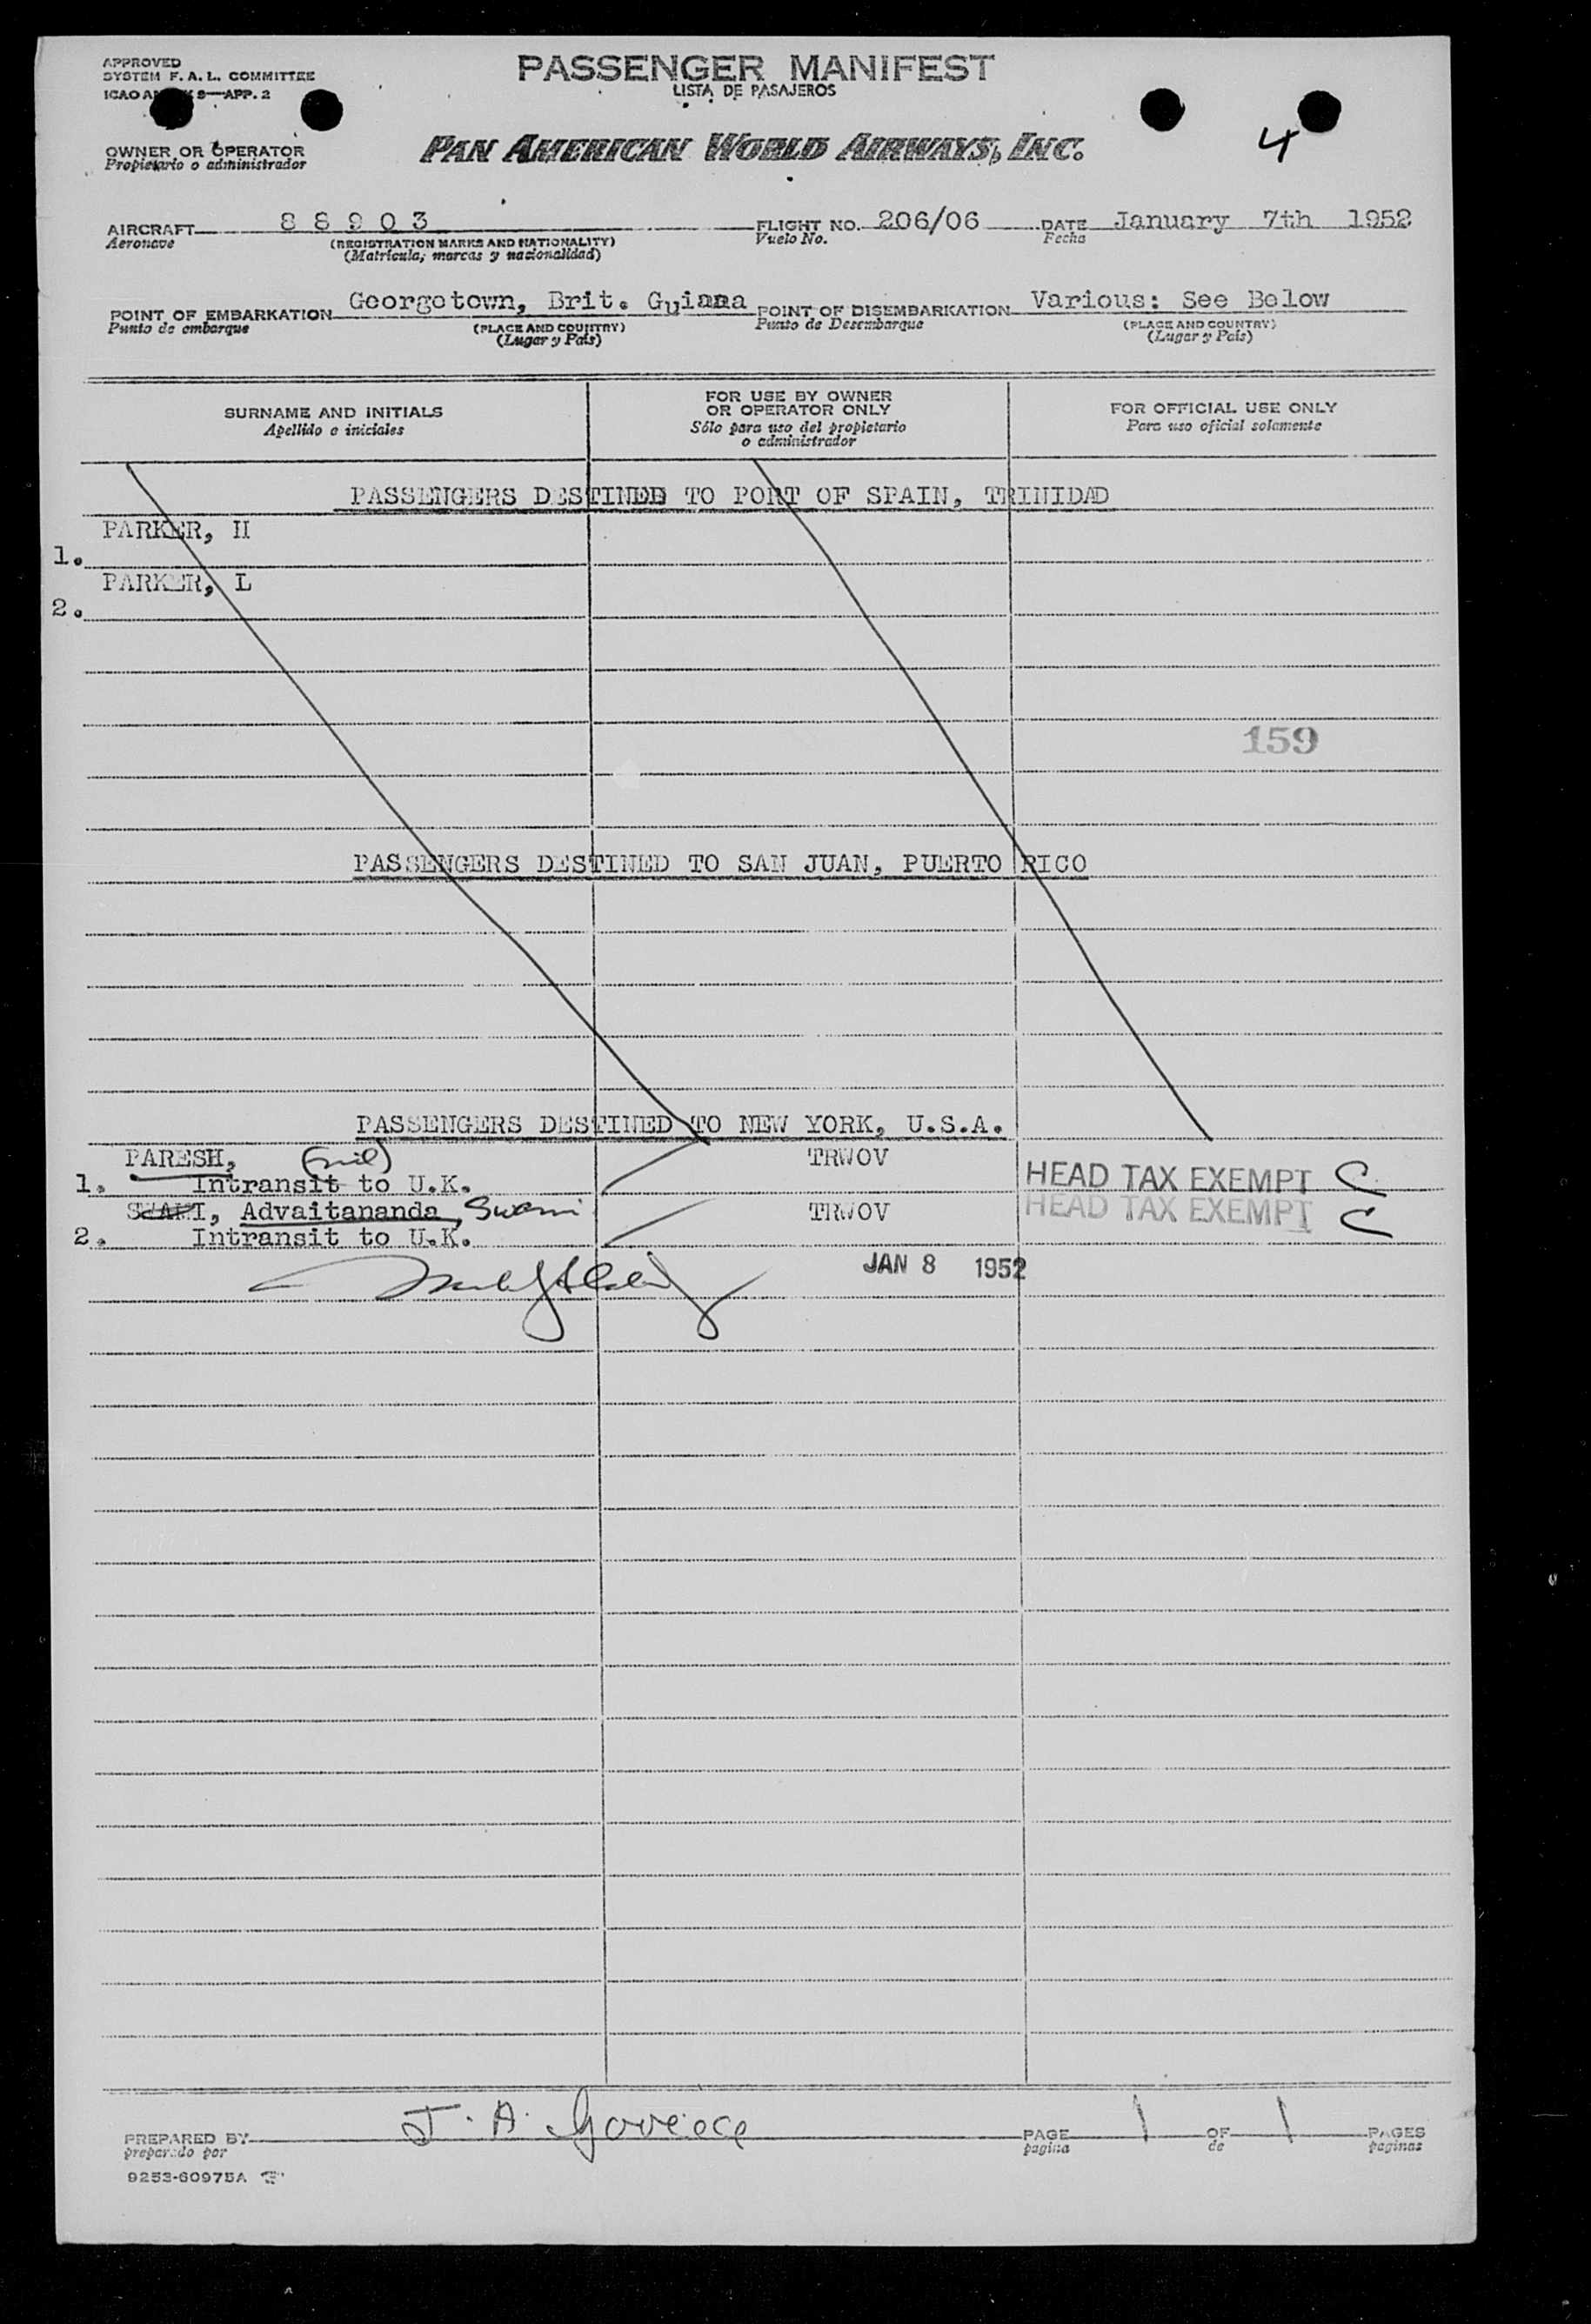 APPROVED
SYSTEM F.A.L. COMMITTEE
ICAO 9—APP. 2
PASSENGER MANIFEST
LISTA DE PASAJEROS
4
OWNER OR OPERATOR
Propietario o administrador
PAN AMERICAN WORLD AIRWAYS, INC.
AIRCRAFT 8 8 9 0 3 FLIGHT NO. 206/06 DATE January 7th 1952
Aeronave (REGISTRATION MARKS AND NATIONALITY) Vuelo No. Fecha
(Matricula, marcas y nacionalidad)
POINT OF EMBARKATION Georgetown, Brit. Guiana POINT OF DISEMBARKATION Various: See Below
Punto de embarque (PLACE AND COUNTRY) Punto de Desembarque (PLACE AND COUNTRY)
(Lugar y País) (Lugar y País)
SURNAME AND INITIALS
Apellido e iniciales
FOR USE BY OWNER
OR OPERATOR ONLY
Sólo para uso del propietario
o administrador
FOR OFFICIAL USE ONLY
Para uso oficial solamente
PASSENGERS DESTINED TO PORT OF SPAIN, TRINIDAD
PARKER, H
1.
PARKER, L
2.
159
PASSENGERS DESTINED TO SAN JUAN, PUERTO RICO
PASSENGERS DESTINED TO NEW YORK, U.S.A.
PARESH, (nil) TRWOV
1. Intransit to U.K. HEAD TAX EXEMPT C
SWAMI, Advaitananda, Swami TRWOV HEAD TAX EXEMPT C
2. Intransit to U.K.
JAN 8 1952
PREPARED BY J. A. PAGE 1 OF 1 PAGES
preparado por pagina de paginas
9253-60975A